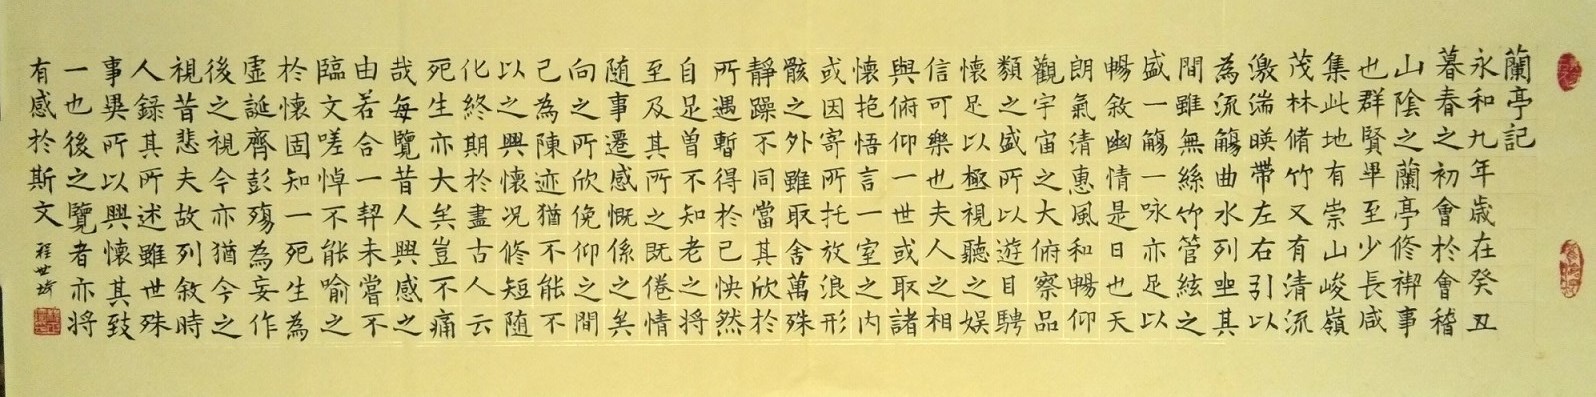 蘭亭記
永和九年歳在癸丑
暮春之初會於會稽
山陰之蘭亭修禊事
也群賢畢至少長咸
集此地有崇山峻嶺
茂林脩竹又有清流
激湍暎帶左右引以
為流觴曲水列坐其
間雖無絲竹管絃之
盛一觴一咏亦足以
暢敘幽情是日也天
朗氣清惠風和暢仰
觀宇宙之大俯察品
類之盛所以遊目騁
懷足以極視聽之娛
信可樂也夫人之相
與俯仰一世或取諸
懷抱悟言一室之内
或因寄所托放浪形
骸之外雖取舍萬殊
靜躁不同當其欣於
所遇暫得於己怏然
自足曽不知老之將
至及其所之既倦情
随事遷感慨係之矣
向之所欣俛仰之間
己為陳迹猶不能不
以之興懷况修短随
化終期於盡古人云
死生亦大矣豈不痛
哉每覽昔人興感之
由若合一契未嘗不
臨文嗟悼不能喻之
於懷固知一死生為
虛誕齊彭殤為妄作
後之視今亦猶今之
視昔悲夫故列敘時
人録其所述雖世殊
事異所以興懷其致
一也後之覽者亦將
有感於斯文